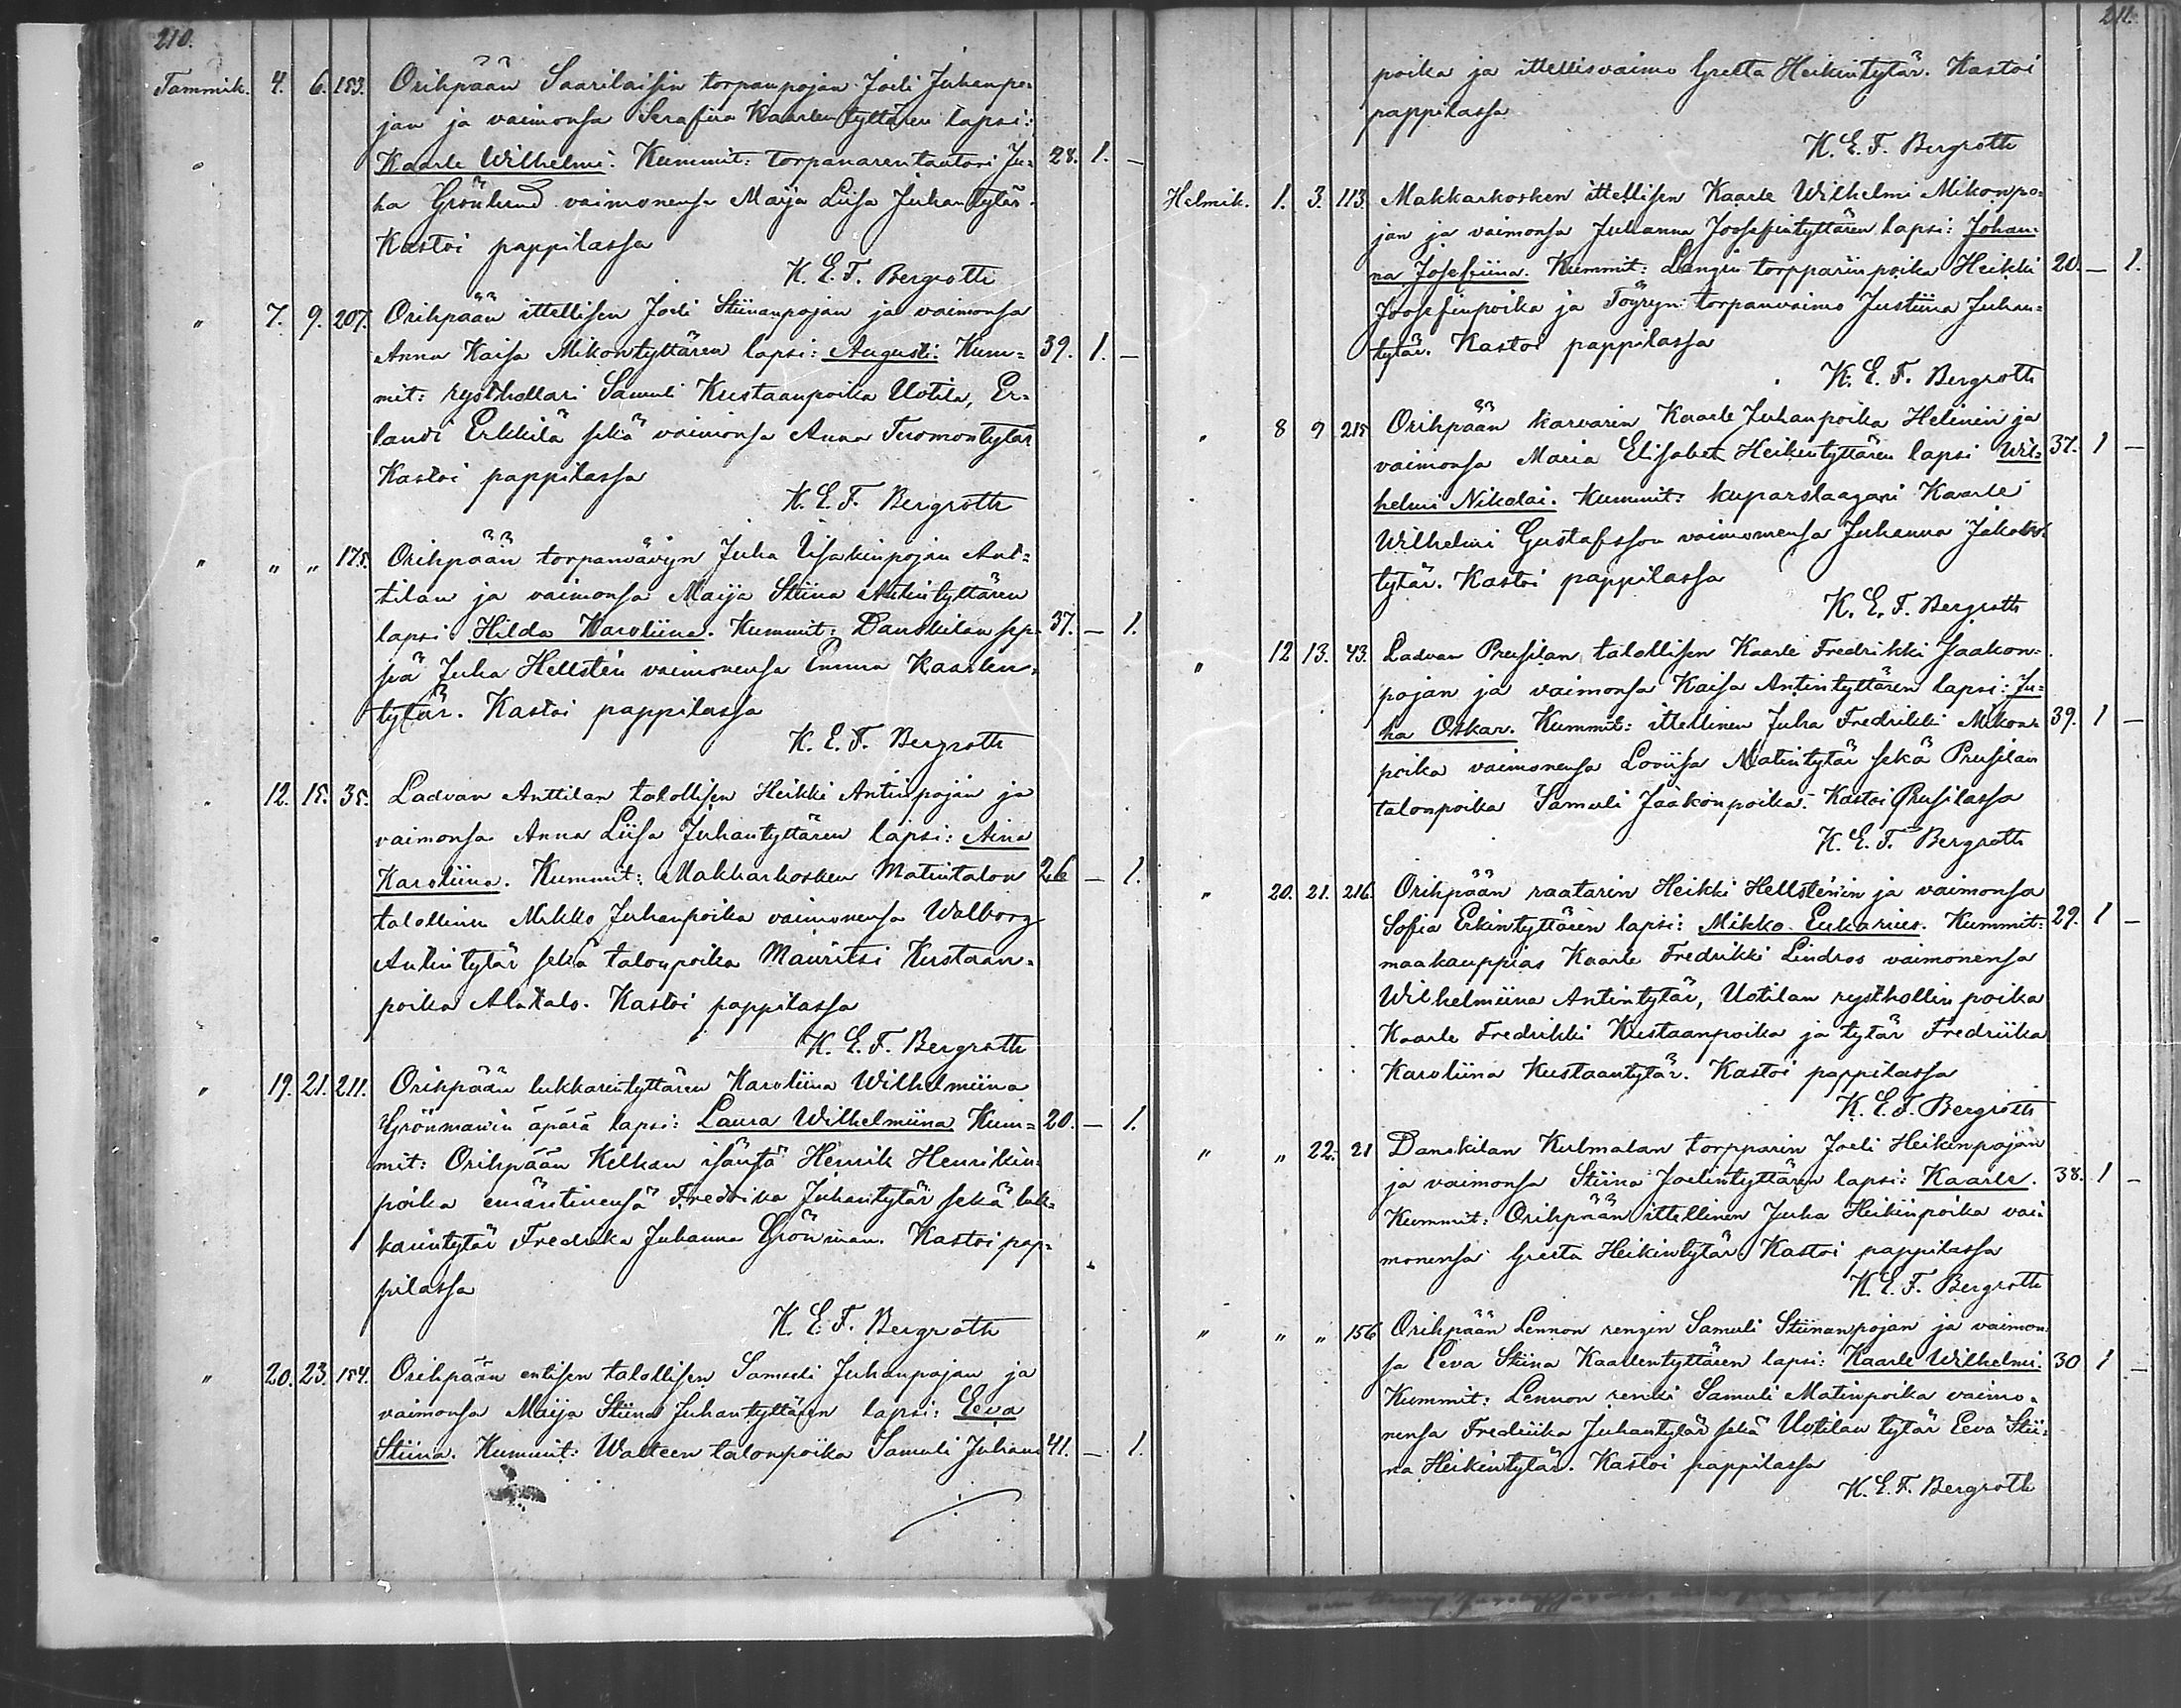 210.
Tammik. 4. 6. 153. Orihpään Saarilaisin torpanpojan Joeli Juhanpo-
jan ja vaimonsa Serafiia Kaarlentyttären lapsi:
" Kaarle Wilhelmi. Kummit: torpanarentaatori Ju- 28. 1. –
ha Grönlund vaimonensa Maija Liisa Juhantytär.
Kastoi pappilassa
K. E. F. Bergroth
" 7. 9. 207. Orihpään ittellisen Joeli Stiinanpojan ja vaimonsa
Anna Kaisa Mikontyttären lapsi: Augusti. Kum= 39. 1. –
mit: rysthollari Samuli Kustaanpoika Uotila, Er-
landi Erkkilä sekä vaimonsa Anna Tuomontytär
Kastoi pappilassa
K. E. F. Bergroth
" " " 175. Orihpään torpanvävyn Juha Iisakinpojan Ant-
tilan ja vaimonsa Maija Stiina Antintyttären
lapsi: Hilda Karoliina. Kummit: Danskilan sep- 37. – 1.
pä Juha Hellstén vaimonensa Emma Kaarlen-
tytär. Kastoi pappilassa
K. E. F. Bergroth
" 12. 15. 35. Ladvan Anttilan talollisen Heikki Antinpojan ja
vaimonsa Anna Liisa Juhantyttären lapsi: Aina
Karoliina. Kummit: Makkarkosken Matintalon 26 – 1.
talollinen Mikko Juhanpoika vaimonensa Walborg
Antintytär sekä talonpoika Mauritsi Kustaan-
poika Alatalo. Kastoi pappilassa
K. E. F. Bergroth
" 19. 21. 211. Orihpään lukkarintyttären Karoliina Wilhelmiina
Grönmanin äpärä lapsi: Laura Wilhelmiina Kum= 20. – 1.
mit: Orihpään Kelhan isäntä Henrik Henrikin-
poika emäntinensä Fredrika Juhantytär sekä luk-
karintytär Fredrika Juhanna Grönman. Kastoi pap-
pilassa
K. E. F. Bergroth
" 20. 23. 154. Orihpään entisen talollisen Samuli Juhanpojan ja
vaimonsa Maija Stiina Juhantyttären lapsi: Eeva
Stiina. Kummit: Walteen talonpoika Samuli Juhan- 41. – 1.
211.
poika ja ittellisvaimo Greta Heikintytär. Kastoi
pappilassa
K. E. F. Bergroth
Helmik. 1. 3. 113. Makkarkosken ittellisen Kaarle Wilhelmi Mikonpo-
jan ja vaimonsa Juhanna Joosefintyttären lapsi: Johan-
na Josefiina. Kummit: Langin torpparinpoika Heikki 20. – 1.
Joosefinpoika ja Töyryn torpanvaimo Justiina Juhan-
tytär. Kastoi pappilassa
K. E. F. Bergroth
" 8 9 215 Orihpään karvarin Kaarle Juhanpoika Helinin ja
vaimonsa Maria Elisabet Heikintyttären lapsi Wil- 37. 1 –
helmi Nikolai. Kummit: kuparslaagari Kaarle
Wilhelmi Gustafsson vaimonensa Juhanna Jakobs-
tytär. Kastoi pappilassa
K. E. F. Bergroth
" 12 13. 43. Ladvan Prusilan talollisen Kaarle Fredrikki Jaakon-
pojan ja vaimonsa Kaisa Antintyttären lapsi: Ju-
ha Oskar. Kummit: ittellinen Juha Fredrikki Mikon- 39. 1 –
poika vaimonensa Loviisa Matintytär sekä Prusilan
talonpoika Samuli Jaakonpoika. Kastoi Prusilassa
K. E. F. Bergroth
" 20. 21. 216. Orihpään raatarin Heikki Hellsténin ja vaimonsa
Sofia Erkintyttären lapsi: Mikko Eukarius. Kummit: 29. 1 –
maakauppias Kaarle Fredrikki Lindros vaimonensa
Wilhelmiina Antintytär, Uotilan rysthollin poika
Kaarle Fredrikki Kustaanpoika ja tytär Fredriika
Karoliina Kustaantytär. Kastoi pappilassa
K. E. F. Bergroth
" " 22. 21 Danskilan Kulmalan torpparin Joeli Heikinpojan
ja vaimonsa Stiina Joelintyttären lapsi: Kaarle. 38. 1 –
Kummit: Orihpään ittellinen Juha Heikinpoika vai-
monensa Greeta Heikintytär. Kastoi pappilassa
K. E. F. Bergroth
" " " 156 Orihpään Lennon rengin Samuli Stiinanpojan ja vaimon-
sa Eeva Stiina Kaarlentyttären lapsi: Kaarle Wilhelmi. 30 1 –
Kummit: Lennon renki Samuli Matinpoika vaimo-
nensa Fredriika Juhantytär sekä Uotilan tytär Eeva Stii-
na Heikintytär. Kastoi pappilassa
K. E. F. Bergroth